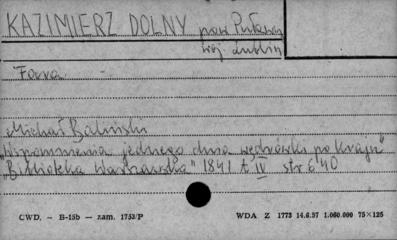 KAZIMIERZ DOLNY pow. Puławy
woj. Lublin
Fara
Michał Baliński
"Wspomnienia jednego dnia wędrówki po kraju"
"Biblioteka Warszawska" 1841 t IV str 640
CWD. - B-15b - zam. 1753/P WDA Z 1773 14.6.57 1.060.000 75×125